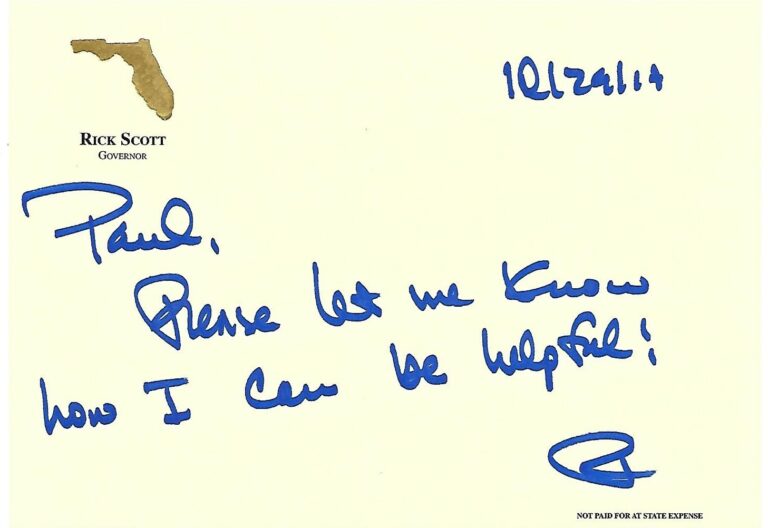 RICK SCOTT
GOVERNOR
10/29/14
Paul,
Please let me know
how I can be helpful!
R
NOT PAID FOR AT STATE EXPENSE